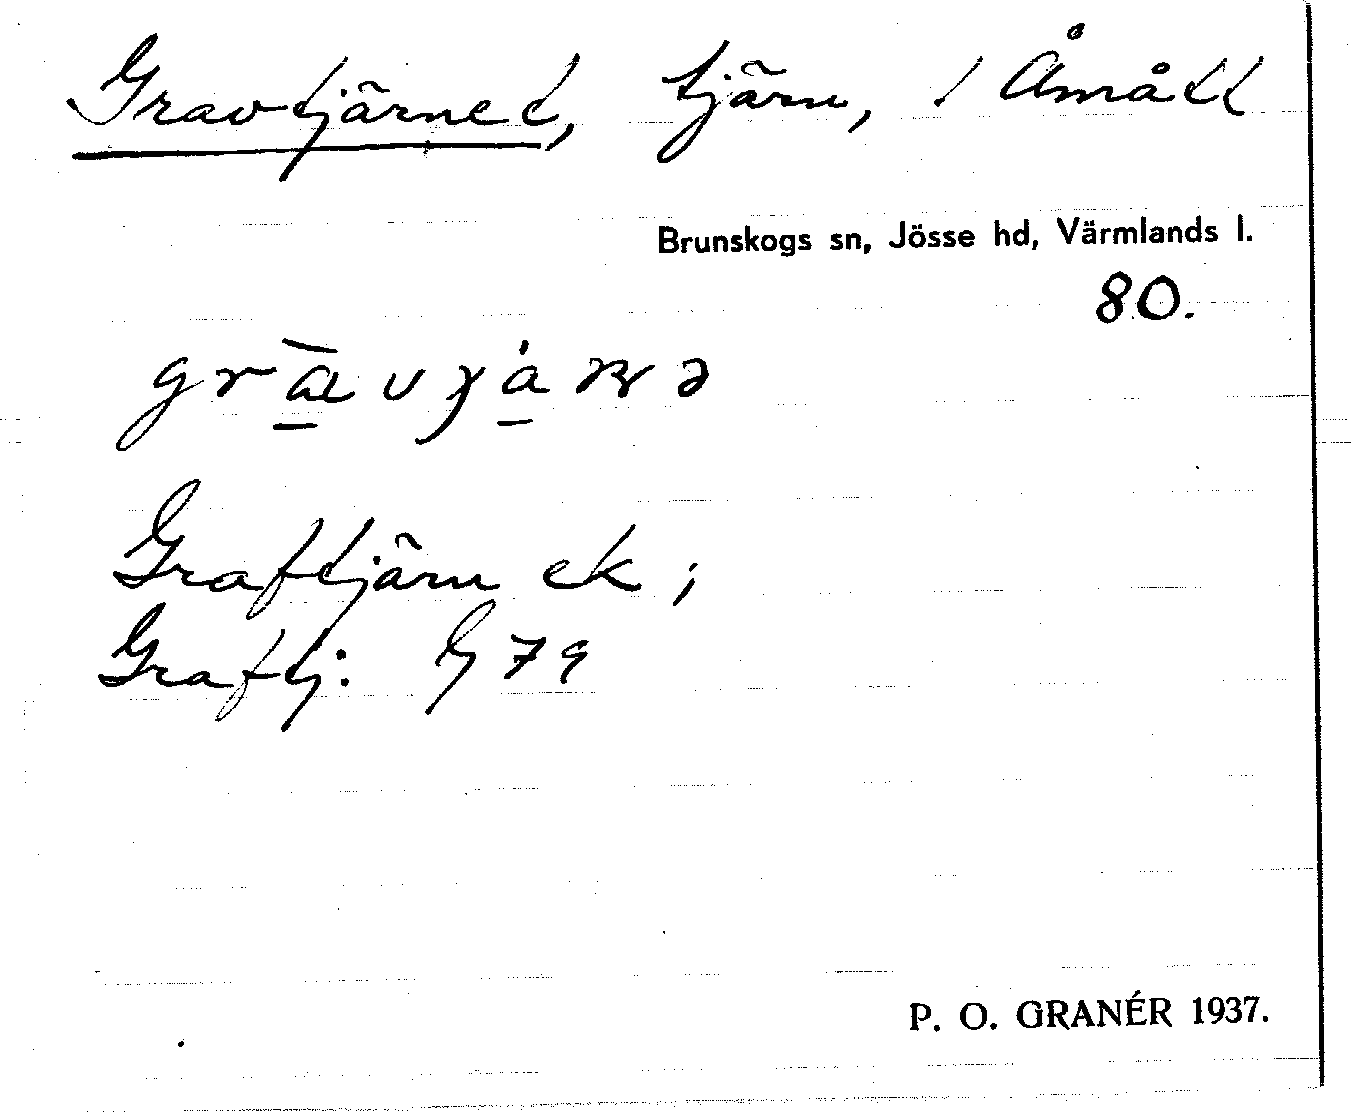 Gravtjärnet, tjärn, i Åmått
Brunskogs sn, Jösse hd, Värmlands l.
80.
Graftjärn ek;
Graftj: G 79
P. O. GRANÉR 1937.